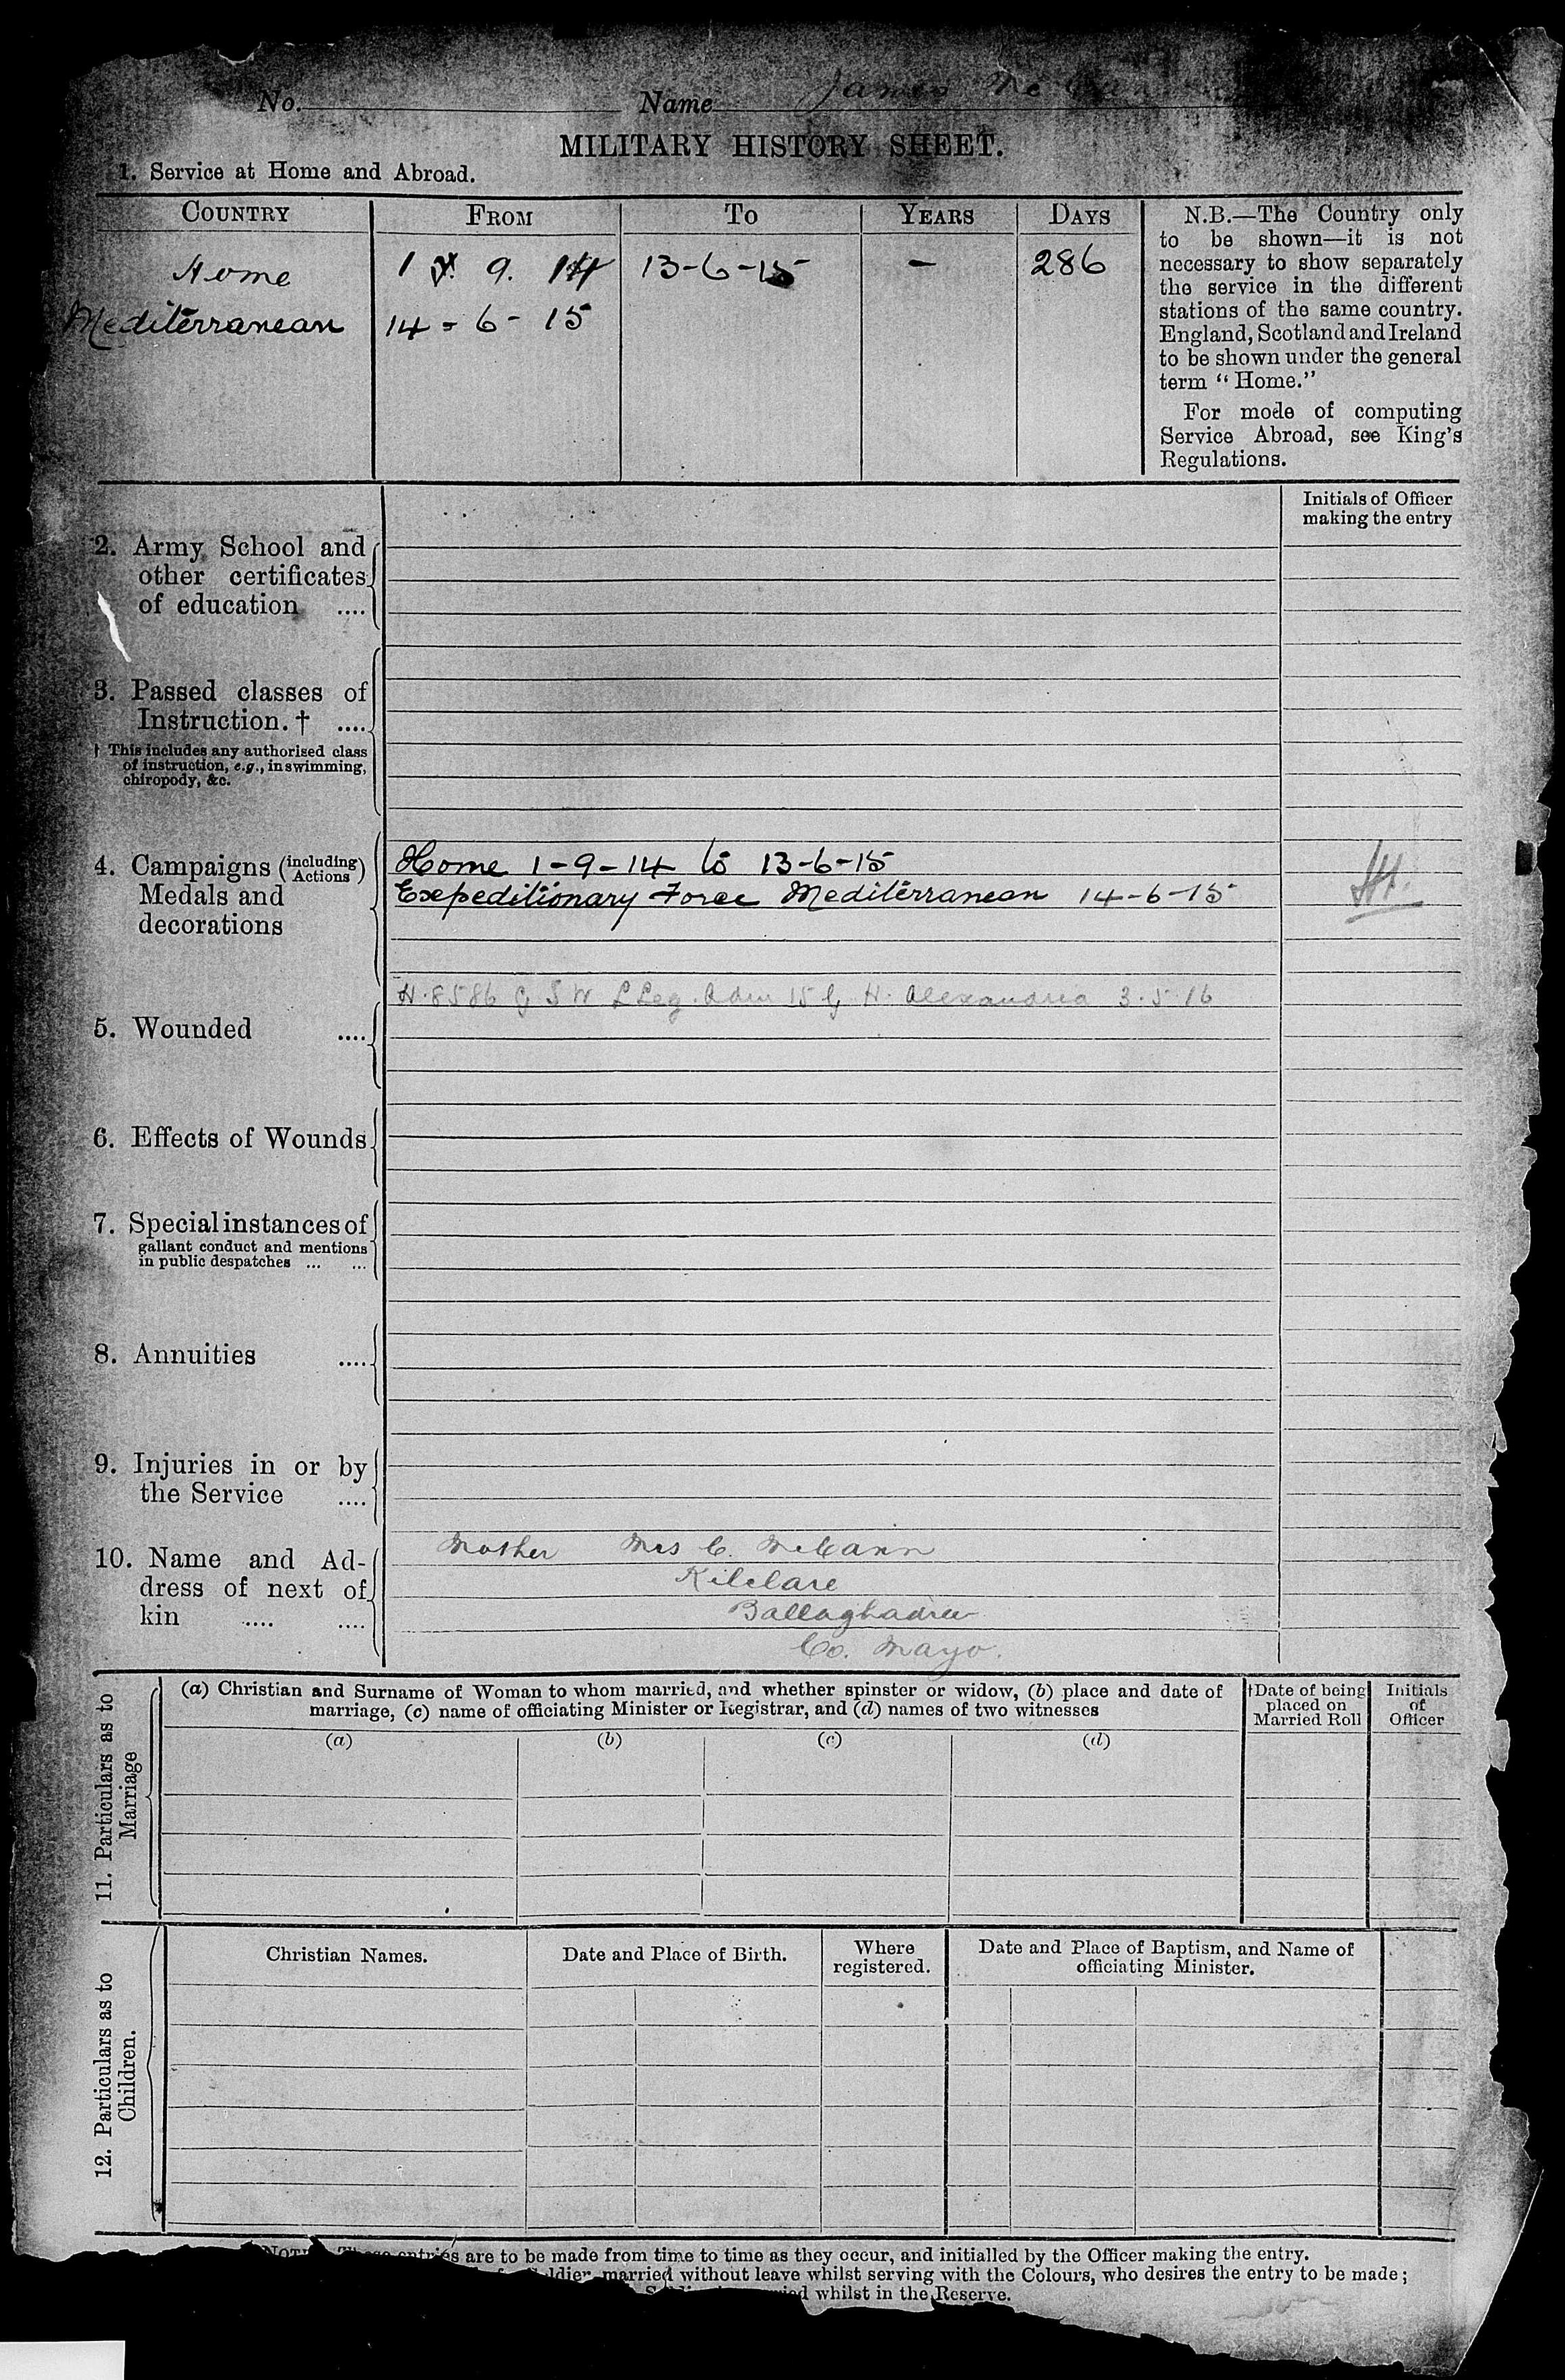 No. Name James McCann
MILITARY HISTORY SHEET.
1. Service at Home and Abroad.
COUNTRY FROM TO YEARS DAYS
Home 1 9. 14 13-6-15 - 286
Mediterranean 14-6-15
N.B.—The Country only
to be shown—it is not
necessary to show separately
the service in the different
stations of the same country.
England, Scotland and Ireland
to be shown under the general
term "Home."
For mode of computing
Service Abroad, see King's
Regulations.
Initials of Officer
making the entry
2. Army School and
other certificates
of education ....
3. Passed classes of
Instruction. † ....
† This includes any authorised class
of instruction, e.g., in swimming,
chiropody, &c.
4. Campaigns (including Actions)
Medals and
decorations
Home 1-9-14 to 13-6-15
Expeditionary Force Mediterranean 14-6-15
H.8586 G S W L Leg. Adm 15 G H. Alexandria 3.5.16
5. Wounded ....
6. Effects of Wounds
7. Special instances of
gallant conduct and mentions
in public despatches ... ...
8. Annuities ....
9. Injuries in or by
the Service ....
10. Name and Ad-
dress of next of
kin .... ....
Mother Mrs C. McCann
Kilclare
Ballaghadree
Co. Mayo.
11. Particulars as to
Marriage
(a) Christian and Surname of Woman to whom married, and whether spinster or widow, (b) place and date of
marriage, (c) name of officiating Minister or Registrar, and (d) names of two witnesses
†Date of being
placed on
Married Roll
Initials
of
Officer
(a) (b) (c) (d)
12. Particulars as to
Children.
Christian Names. Date and Place of Birth. Where
registered.
Date and Place of Baptism, and Name of
officiating Minister.
entries are to be made from time to time as they occur, and initialled by the Officer making the entry.
married without leave whilst serving with the Colours, who desires the entry to be made;
whilst in the Reserve.